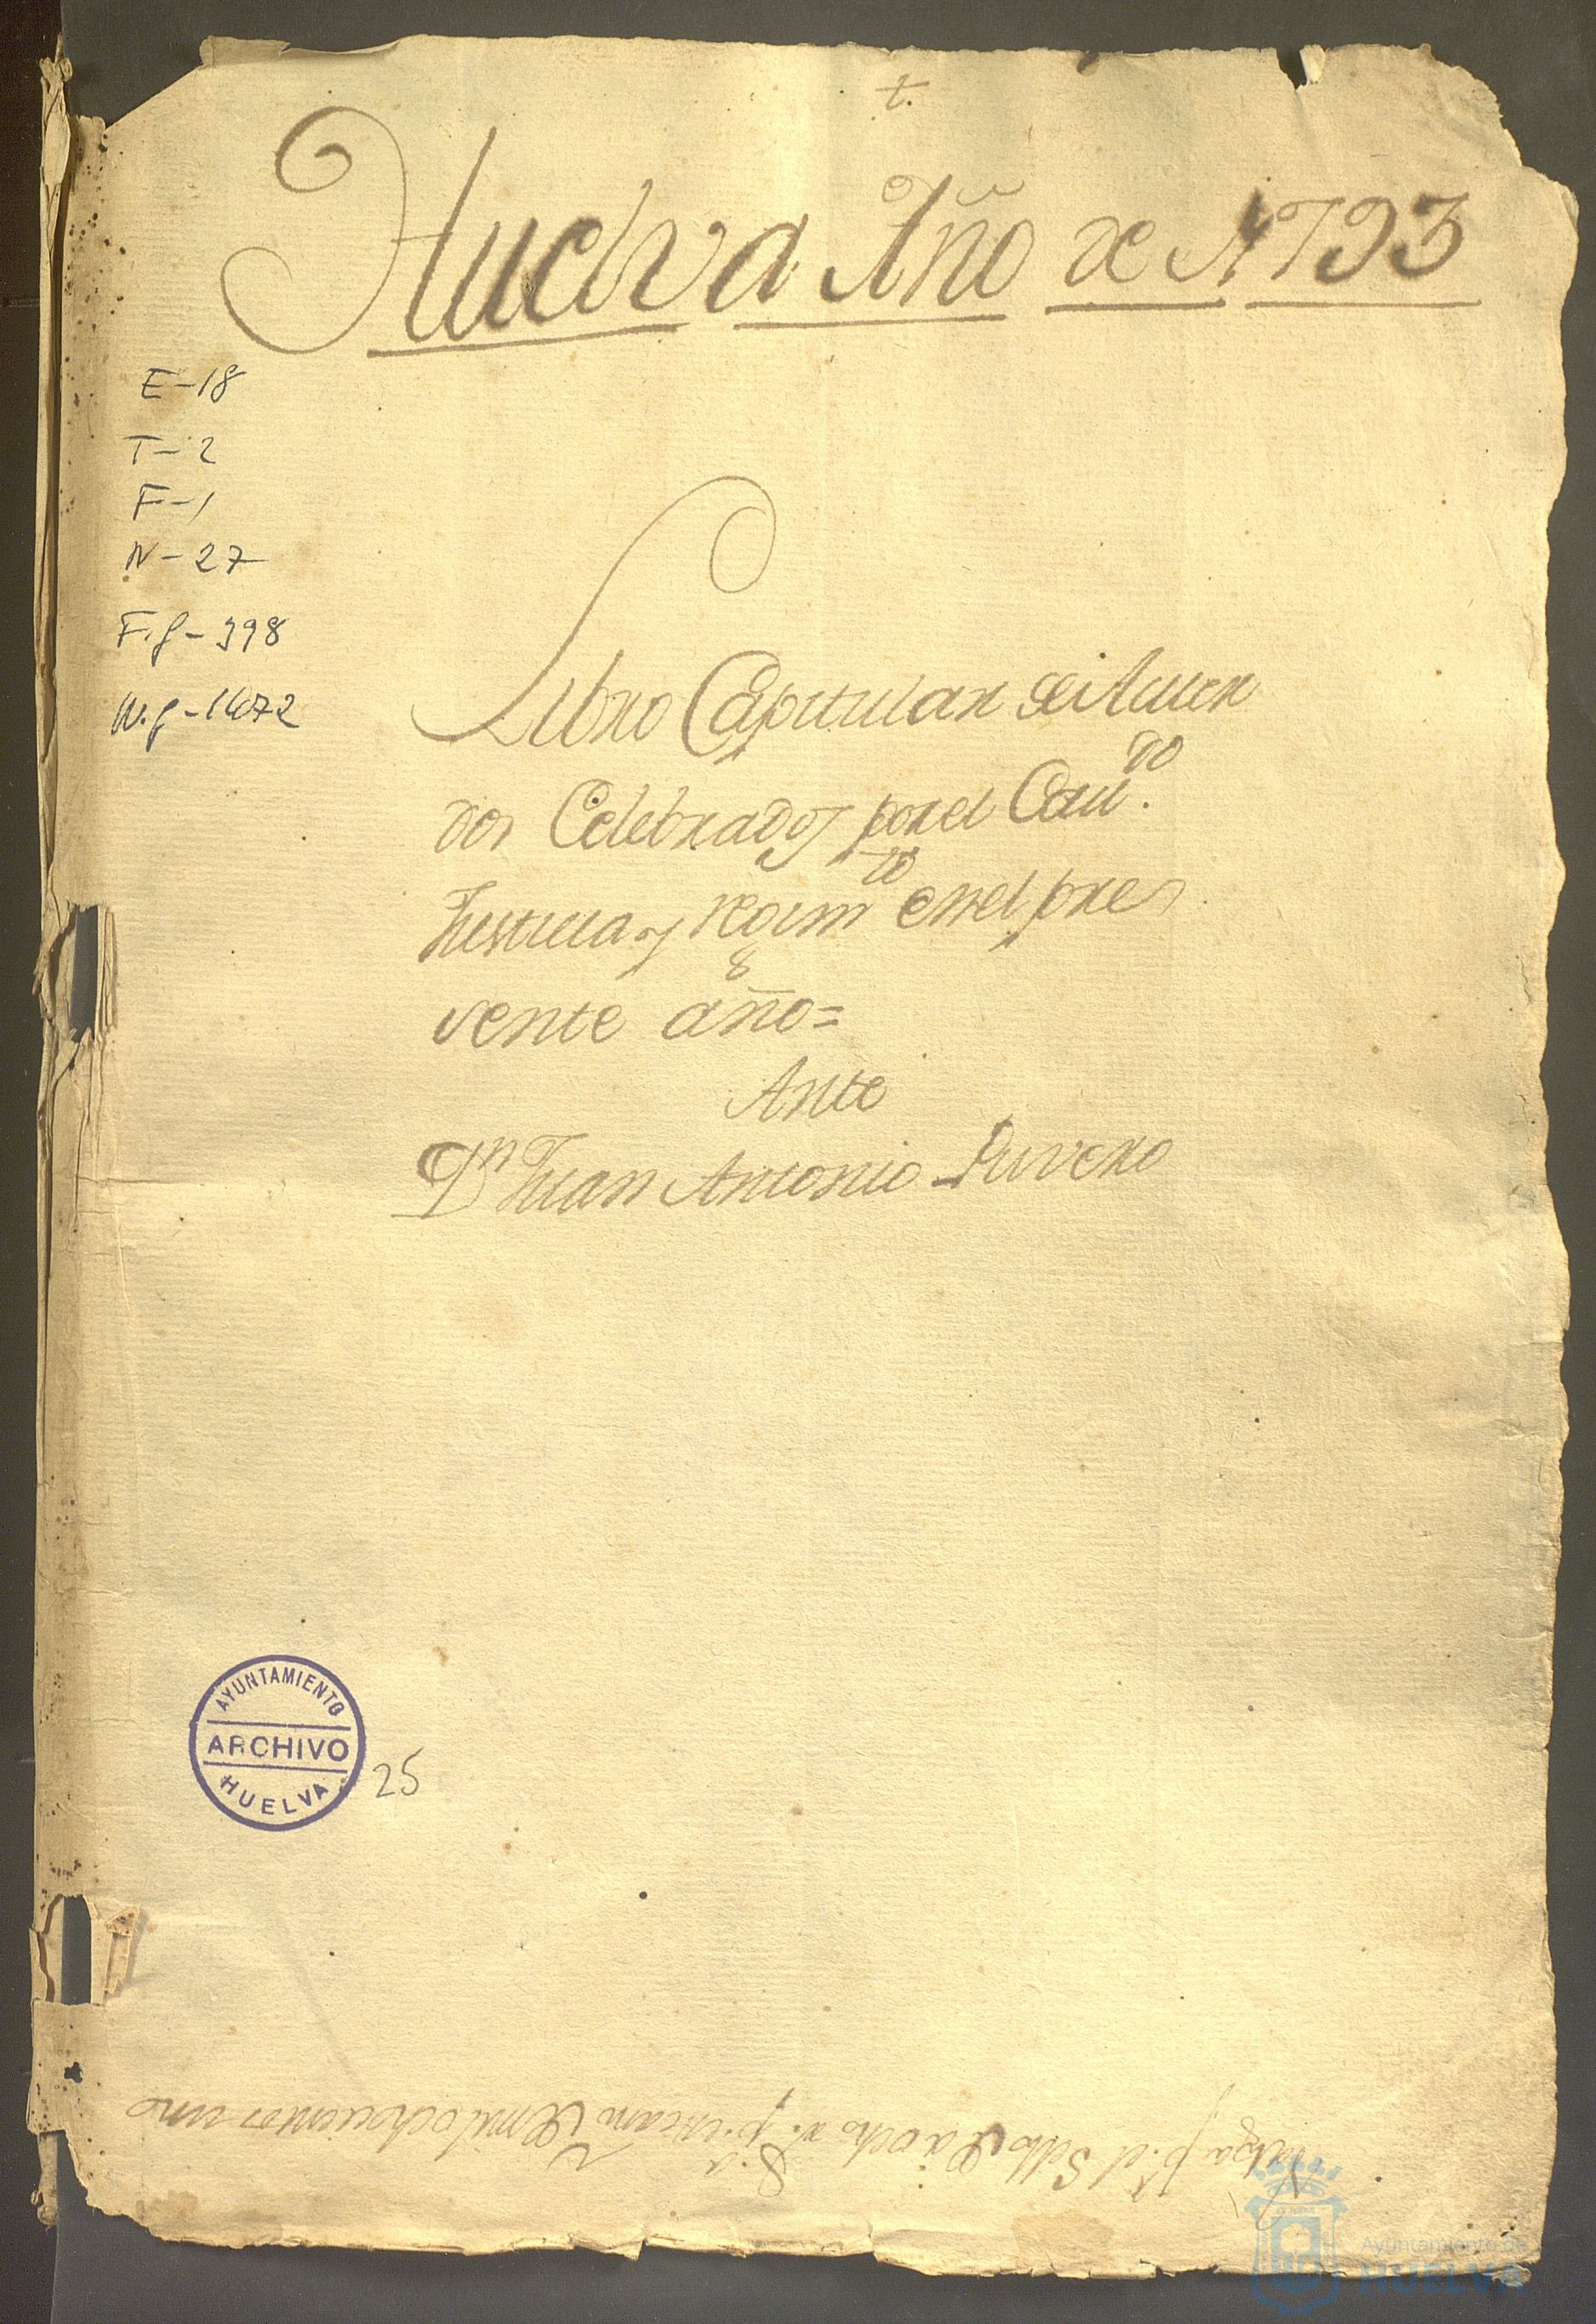 t.
Huelva Año de 1793
E-18
T-2
F-1
N-27
F.g-398
N.g-1472
Libro Capitular de Acuer
dos Celebrados por el Cav.do
Justicia y regimto en el pre
sente año=
Ante
Dn Juan Antonio Rivero
AYUNTAMIENTO
ARCHIVO
HUELVA
25
Valga p.a el Sello de mil ochocientos uno
Ayuntamiento de
HUELVA